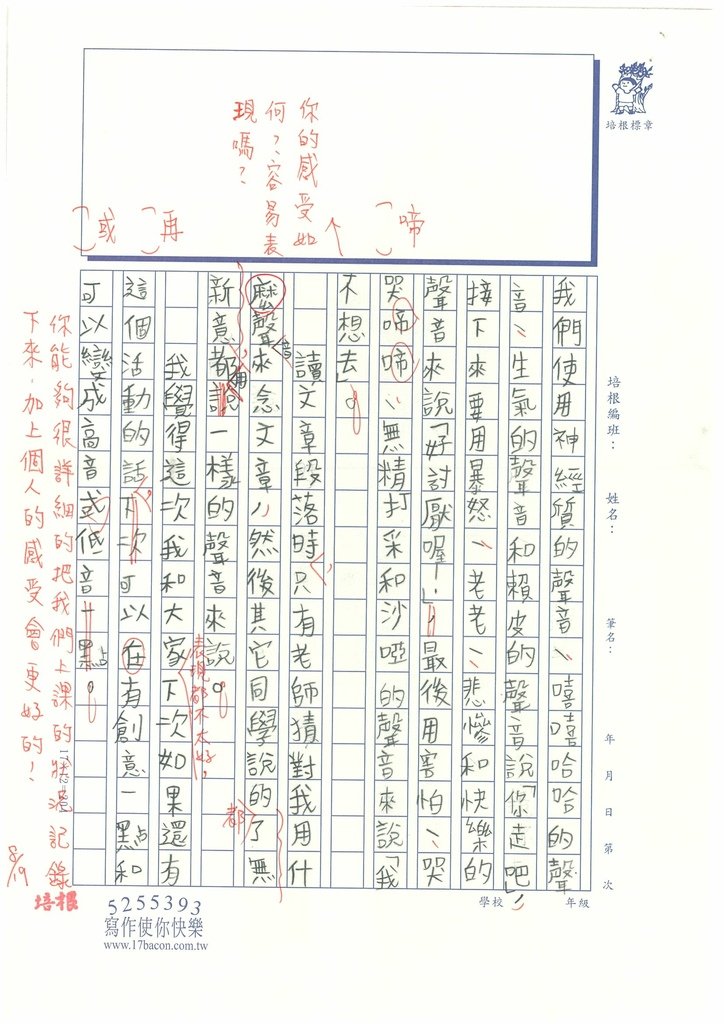 培根標章
你的感受如
何?容易表
現嗎?
啼
再
或
培根編班:
姓名:
筆名:
年 月 日 第 次
學校
年級
我們使用神經質的聲音、嘻嘻哈哈的聲
音、生氣的聲音和賴皮的聲音說「你走吧」,
接下來要用暴怒、老老、悲慘和快樂的
聲音來說「好討厭喔!」,最後用害怕、哭
哭啼啼、無精打采和沙啞的聲音來說「我
不想去」。
讀文章段落時,只有老師猜對我用什
麼聲音來念文章,然後其它同學說的了無
新意都用說一樣的聲音來說。
都
表現都不太好,
我覺得這次我和大家下次如果還有
這個活動的話,下次可以在有創意一點和
可以變成高音或低音一點。
你能夠很詳細的把我們上課的狀況記錄
下來,加上個人的感受會更好的!
8/19
培根
5255393
寫作使你快樂
www.17bacon.com.tw